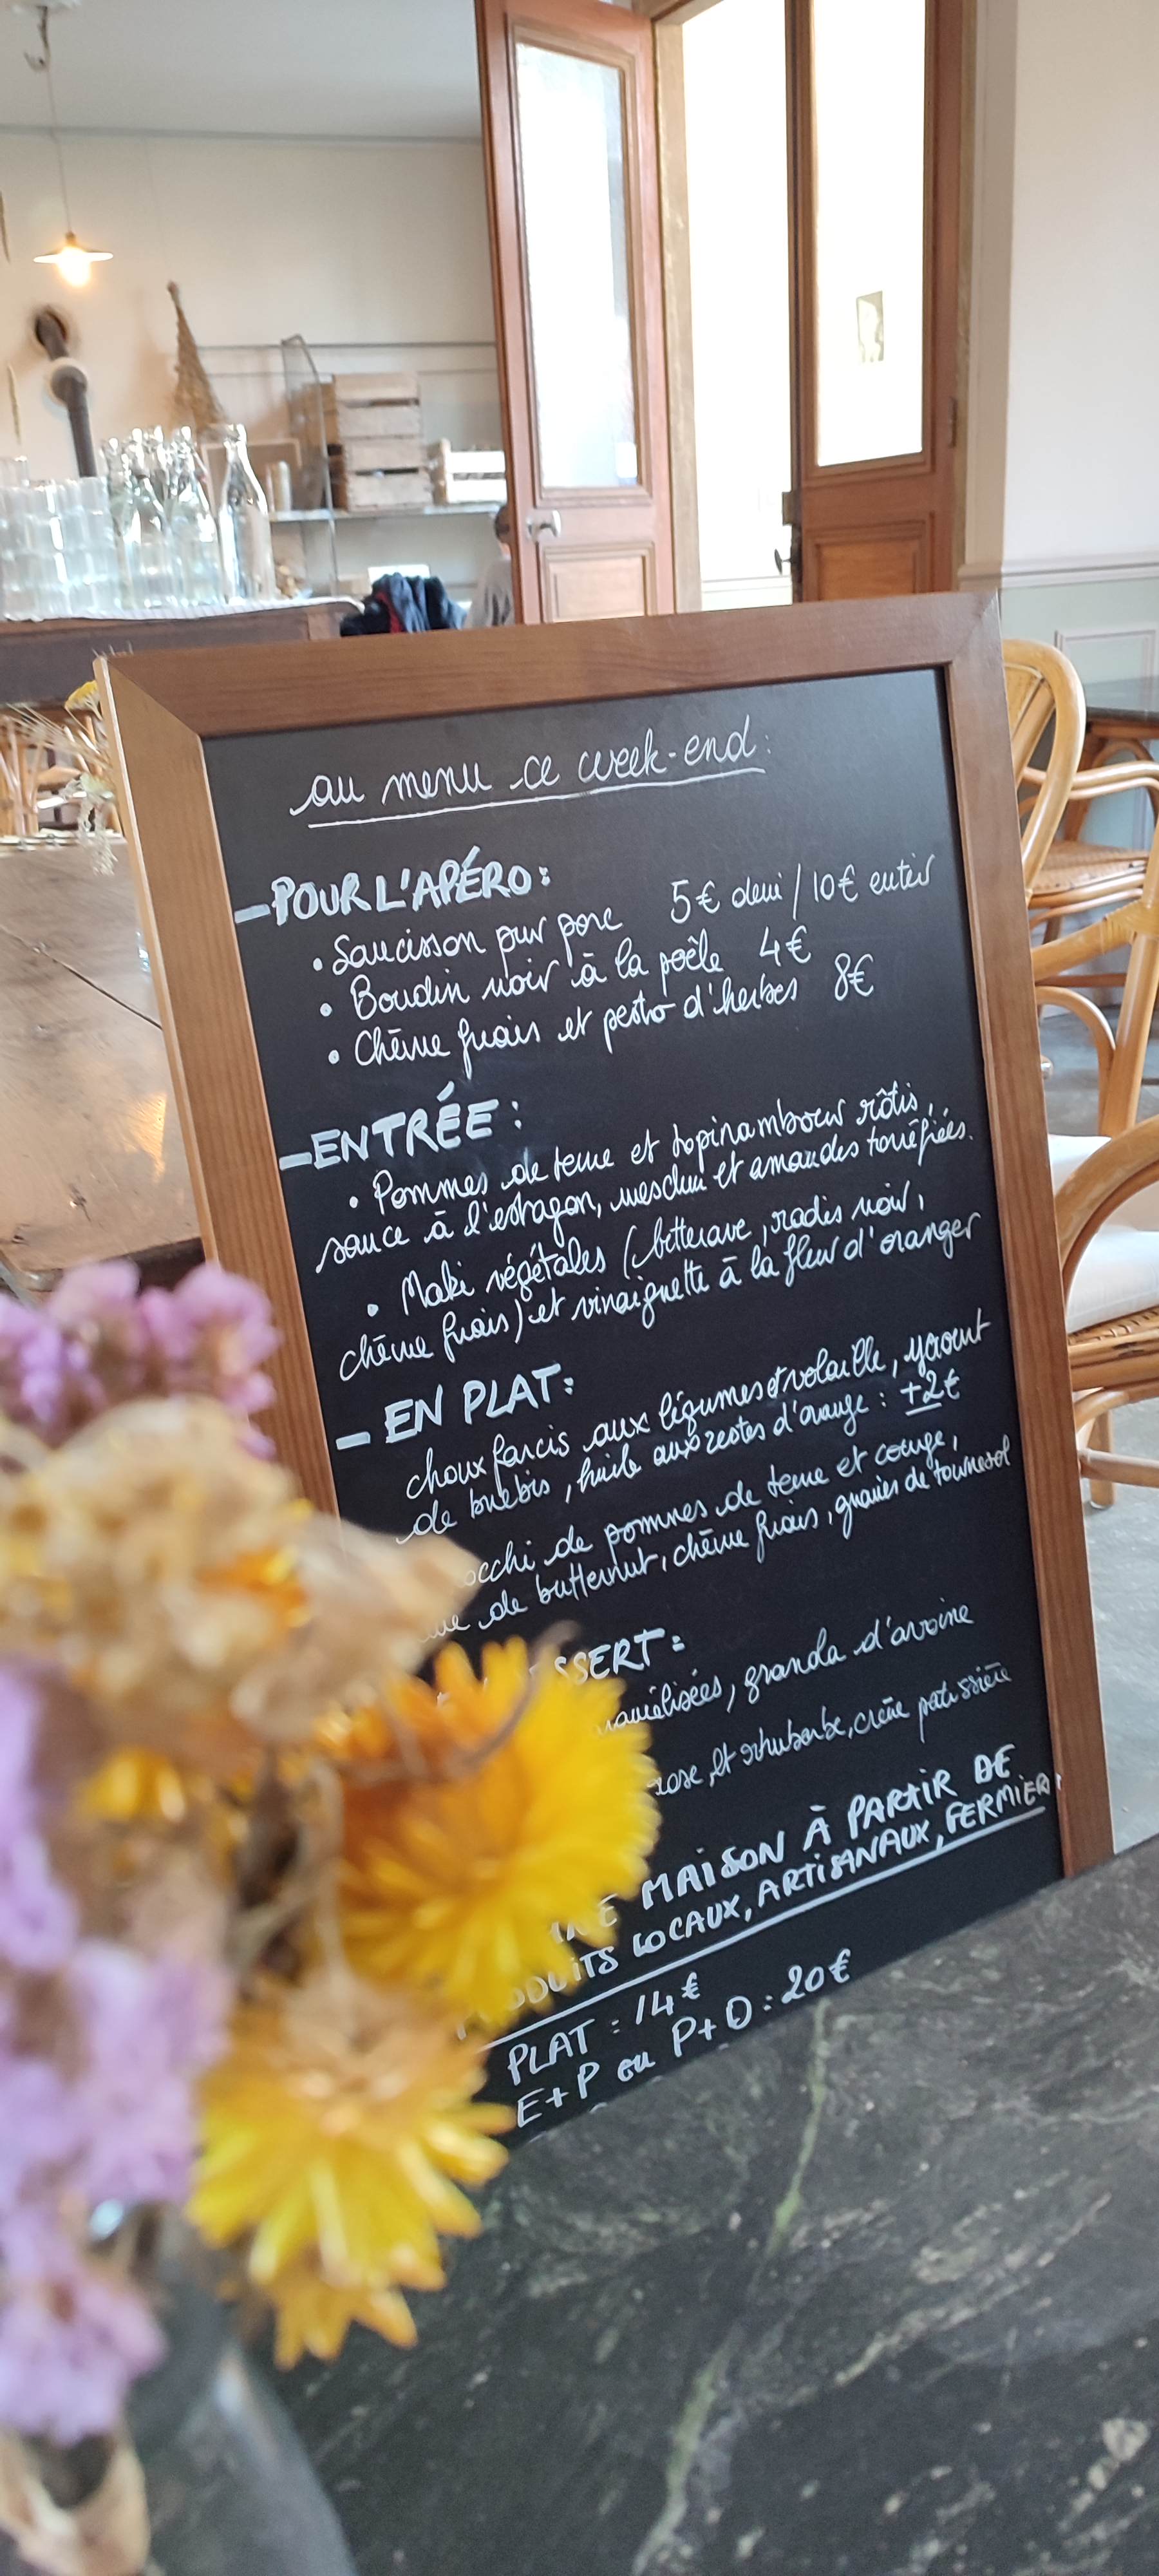 au menu ce week-end:
- POUR L'APÉRO:
• Saucisson pur porc 5€ demi / 10€ entier
• Boudin noir à la poêle 4€
• Chèvre frais et pesto d'herbes 8€
- ENTRÉE:
• Pommes de terre et topinambour rôtis,
sauce à l'estragon, mesclun et amandes torréfiées.
• Maki végétales (betterave, radis noir,
chèvre frais) et vinaigrette à la fleur d'oranger
- EN PLAT:
choux farcis aux légumes et volaille, yaourt
de brebis, huile aux zestes d'orange : +2€
de pommes de terre et courge,
de butternut, chèvre frais, graines de tournesol
granola d'avoine
rose, et rhubarbe, crème patissière
MAISON À PARTIR DE
LOCAUX, ARTISANAUX, FERMIER
PLAT : 14€
E+P ou P+D : 20€